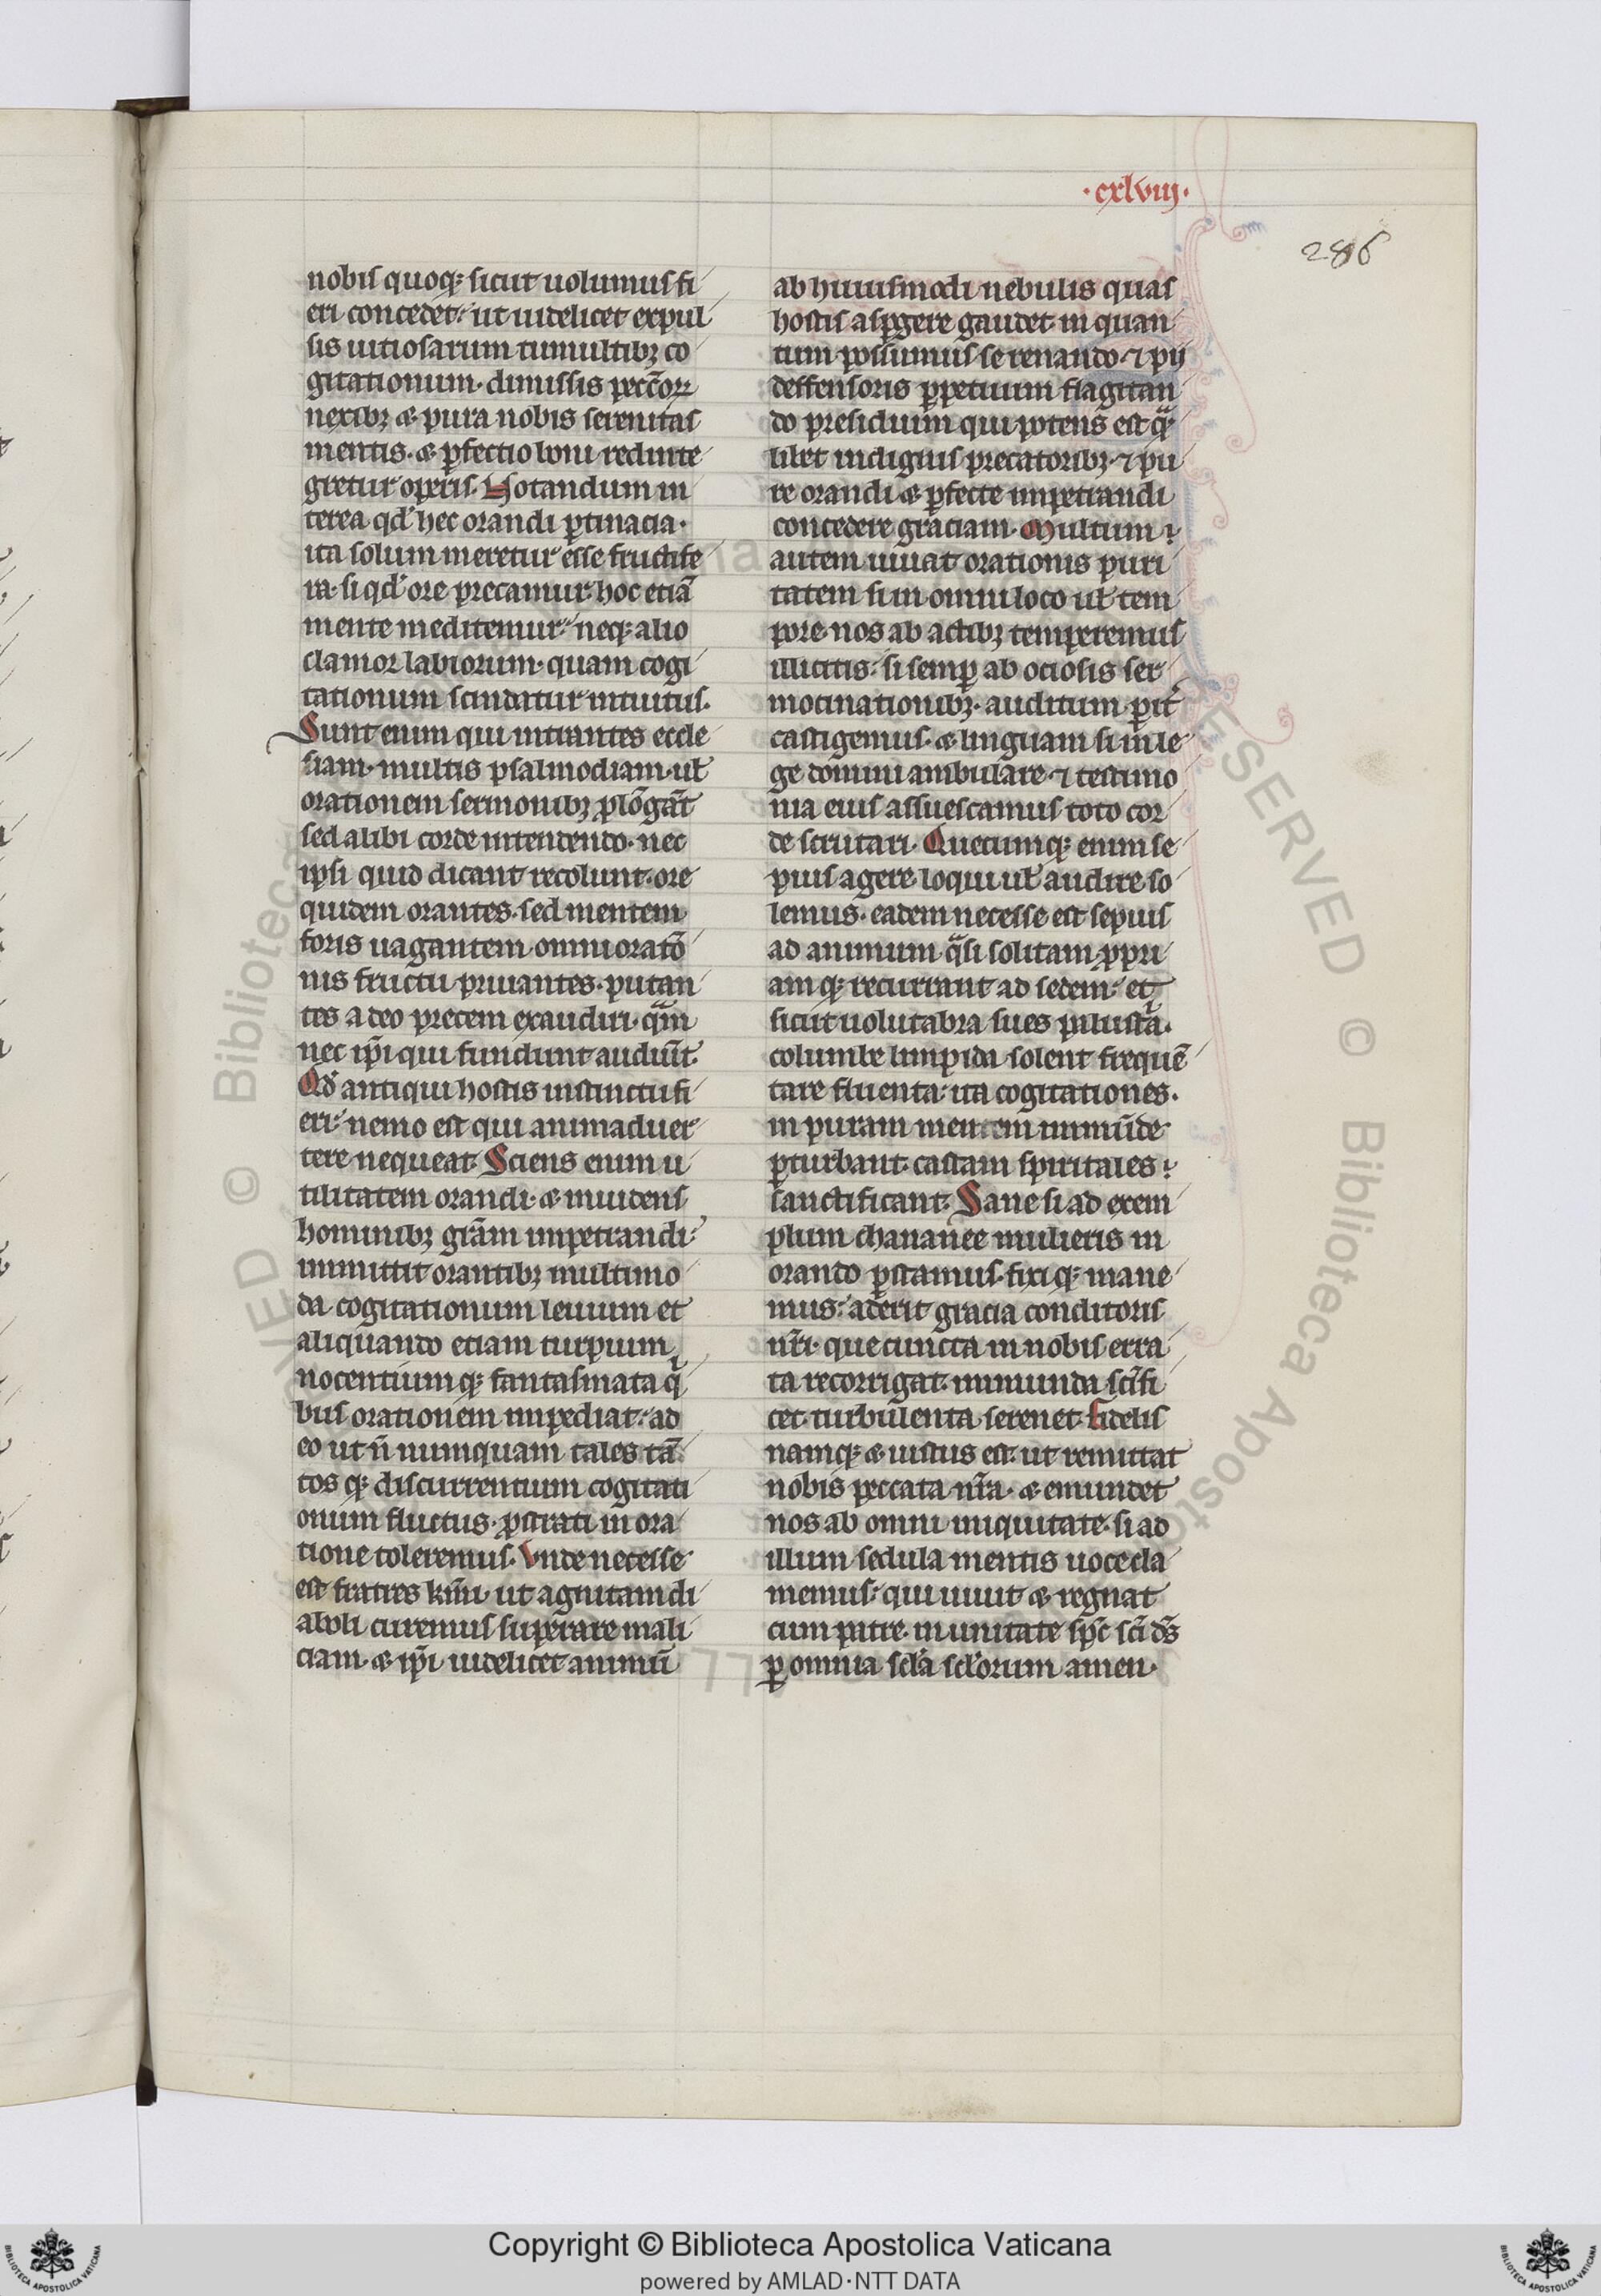 ·cxlviij·
286
nobis quoq; sicut uolumus fi
eri concedet: ut uidelicet expul
sis uitiosarum tumultibꝫ co
gitationum· dimissis pecc̄oꝝ
nexibꝫ & pura nobis serenitas
mentis· & ꝑfectio boni redinte
gretur operis· Notandum in
terea qd̛ hec orandi ꝑtinacia·
ita solum meretur esse fructife
ra· si qd̛ ore precamur· hoc etiā
mente meditemur· neq; alio
clamor labiorum· quam cogi
tationum scindatur intuitus.
Sunt enim qui intrantes eccle
siam· multis psalmodiam· ul̛
orationem sermonibꝫ ꝓlōgāt
sed alibi corde intendendo· nec
ipsi quid dicant recolunt· ore
quidem orantes· sed mentem
foris uagantem omni oratō
nis fructu priuantes· putan
tes a deo precem exaudiri· qͣm
nec ip̄i qui fundunt audiūt.
Qd̛ antiqui hostis instinctu fi
eri· nemo est qui animaduer
tere nequeat· Sciens enim u
tilitatem orandi· & inuidens
hominibꝫ gr̄am impetrandi·
immittit orantibꝫ multimo
da cogitationum leuium et
aliquando etiam turpium
nocentium q; fantasmata qͥ
bus orationem impediat· ad
eo ut n̄ numquam tales tā
tos q; discurrentium cogitati
onum fluctus· ꝓstrati in ora
tione toleremus· Vnde necesse
est fratres kr̄mi· ut agnitam di
aboli curemus superare mali
ciam· & ip̄i uidelicet animū
ab huiusmodi nebulis quas
hostis aspgere gaudet· in quan
tum possumus serenando· ⁊ pij
deffensoris ꝑpetuum flagitan
do presidium qui potens est qͣ
libet indignis precatoribꝫ· ⁊ pu
re orandi & ꝑfecte impetrandi
concedere graciam· Multum
autem iuuat orationis puri
tatem si in omni loco ul̛ tem
pore· nos ab actibꝫ temperemus
illicitis· si semꝑ ab ociosis ser
mocinationibꝫ· auditum ꝑit̛
castigemus· & linguam si in le
ge domini ambulare· ⁊ testimo
nia eius assuescamus toto cor
de scrutari· Quecumq; enim se
pius agere loqui ul̛ audire so
lemus· eadem necesse est sepius
ad animum qͣsi solitam ꝓpri
am q; recurrant ad sedem· et
sicut uolutabra sues palustͣ·
columbe limpida solent frequē
tare fluenta· ita cogitationes·
in puram mentem inmūde
ꝑturbant· castam spiritales
sanctificant· Sane si ad exem
plum chananee mulieris in
orando ꝑstamus· fixi q; mane
mus· aderit gracia conditoris
nr̄i· que cuncta in nobis erra
ta recorrigat· inmunda sc̄ifi
cet· turbulenta serenet· fidelis
namq; & iustus est· ut remittat
nobis peccata nr̄a· & emundet
nos ab omni iniquitate· si ad
illum sedula mentis uoce cla
memus· qui uiuit & regnat
cum patre· in unitate sp̄c sc̄i ds̄
ꝑ omnia scl̛a scl̛orum amen·
Copyright © Biblioteca Apostolica Vaticana
powered by AMLAD·NTT DATA